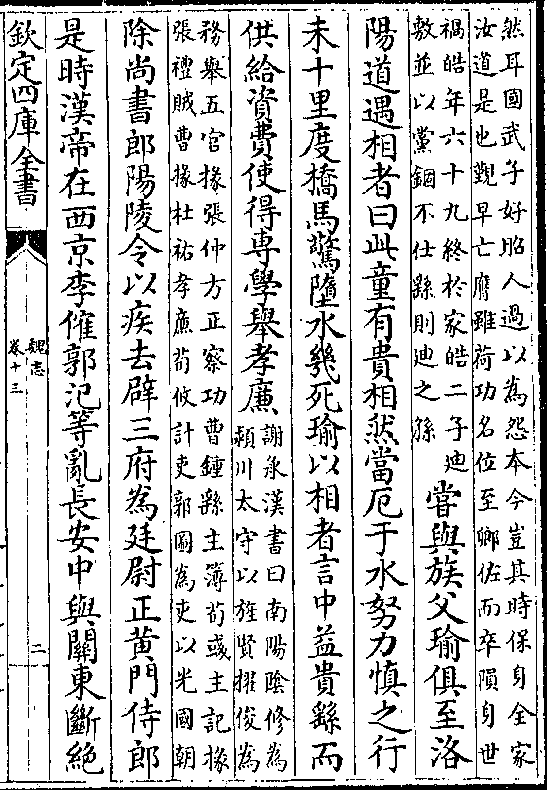 然耳國武子好昭人過以為怨本今豈其時保身全家
汝道是也覲早亡膺雖荷功名位至卿佐而卒隕身世
禍皓年六十九終於家皓二子迪
敷並以黨錮不仕繇則迪之孫
嘗與族父瑜俱至洛
陽道遇相者曰此童有貴相然當厄于水努力慎之行
未十里度橋馬驚墮水幾死瑜以相者言中益貴繇而
供給資費使得專學舉孝廉
謝承漢書曰南陽陰修為
潁川太守以旌賢擢俊為
務舉五官掾張仲方正察功曹鍾繇主簿荀彧主記掾
張禮賊曹掾杜祐孝廉荀攸計吏郭圖為吏以光國朝
除尚書郎陽陵令以疾去辟三府為廷尉正黃門侍郎
是時漢帝在西京李傕郭汜等亂長安中與關東斷絕
欽定四庫全書
魏志
卷十三
二